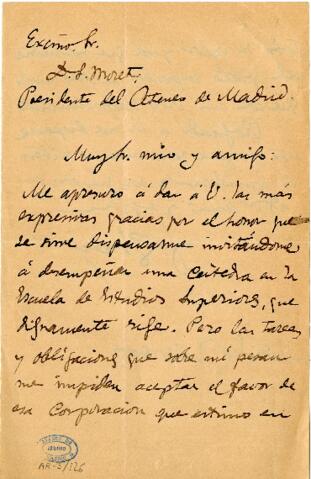 Excmo. Sr.
D. S. Moret,
Presidente del Ateneo de Madrid.
Muy Sr. mio y amigo:
Me apresuro á dar á V. las más
expresivas gracias por el honor que
se sirve dispensarme invitándome
á desempeñar una cátedra en la
Escuela de Estudios Superiores, que
dignamente rige. Pero las tareas
y obligaciones que sobre mí pesan
me impiden aceptar el favor de
esa Corporacion que estimo en
AR-5/126